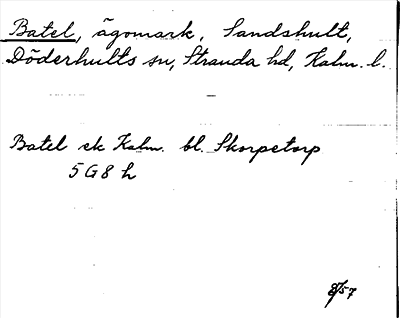 Batel, ägomark, Sandshult,
Döderhults sn, Stranda hd, Kalm. l.
Batel ek Kalm. bl. Skorpetorp
5G8h